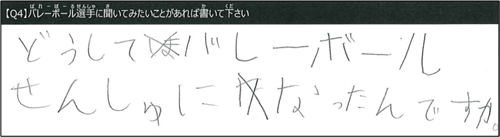 【Q4】バレーボール選手に聞いてみたいことがあれば書いて下さい
どうしてバレーボール
せんしゅになったんですか